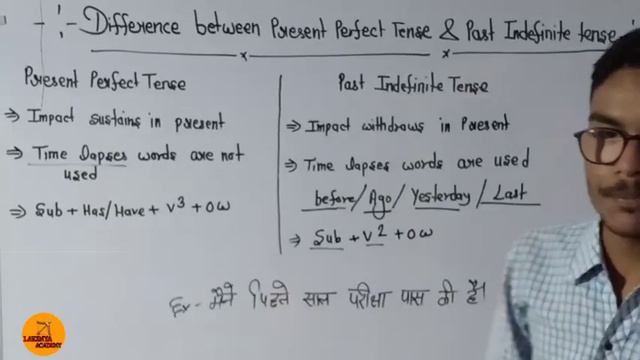 -:- Difference between Present Perfect Tense & Past Indefinite tense
Present Perfect Tense
⇒ Impact sustains in present
⇒ Time lapses words are not
used
⇒ Sub + Has/Have + V³ + OW
Past Indefinite Tense
⇒ Impact withdraws in Present
⇒ Time lapses words are used
before / Ago / Yesterday / Last
⇒ Sub + V² + OW
Ex- मैंने पिछले साल परीक्षा पास की है।
LAKSHYA
ACADEMY